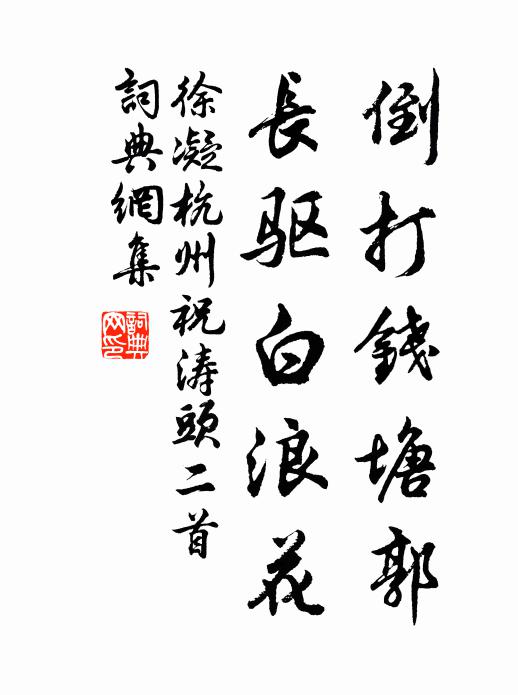 倒打錢塘郭
長驱白浪花
徐凝杭州祝涛頭二首
詞典網集
詞典网印